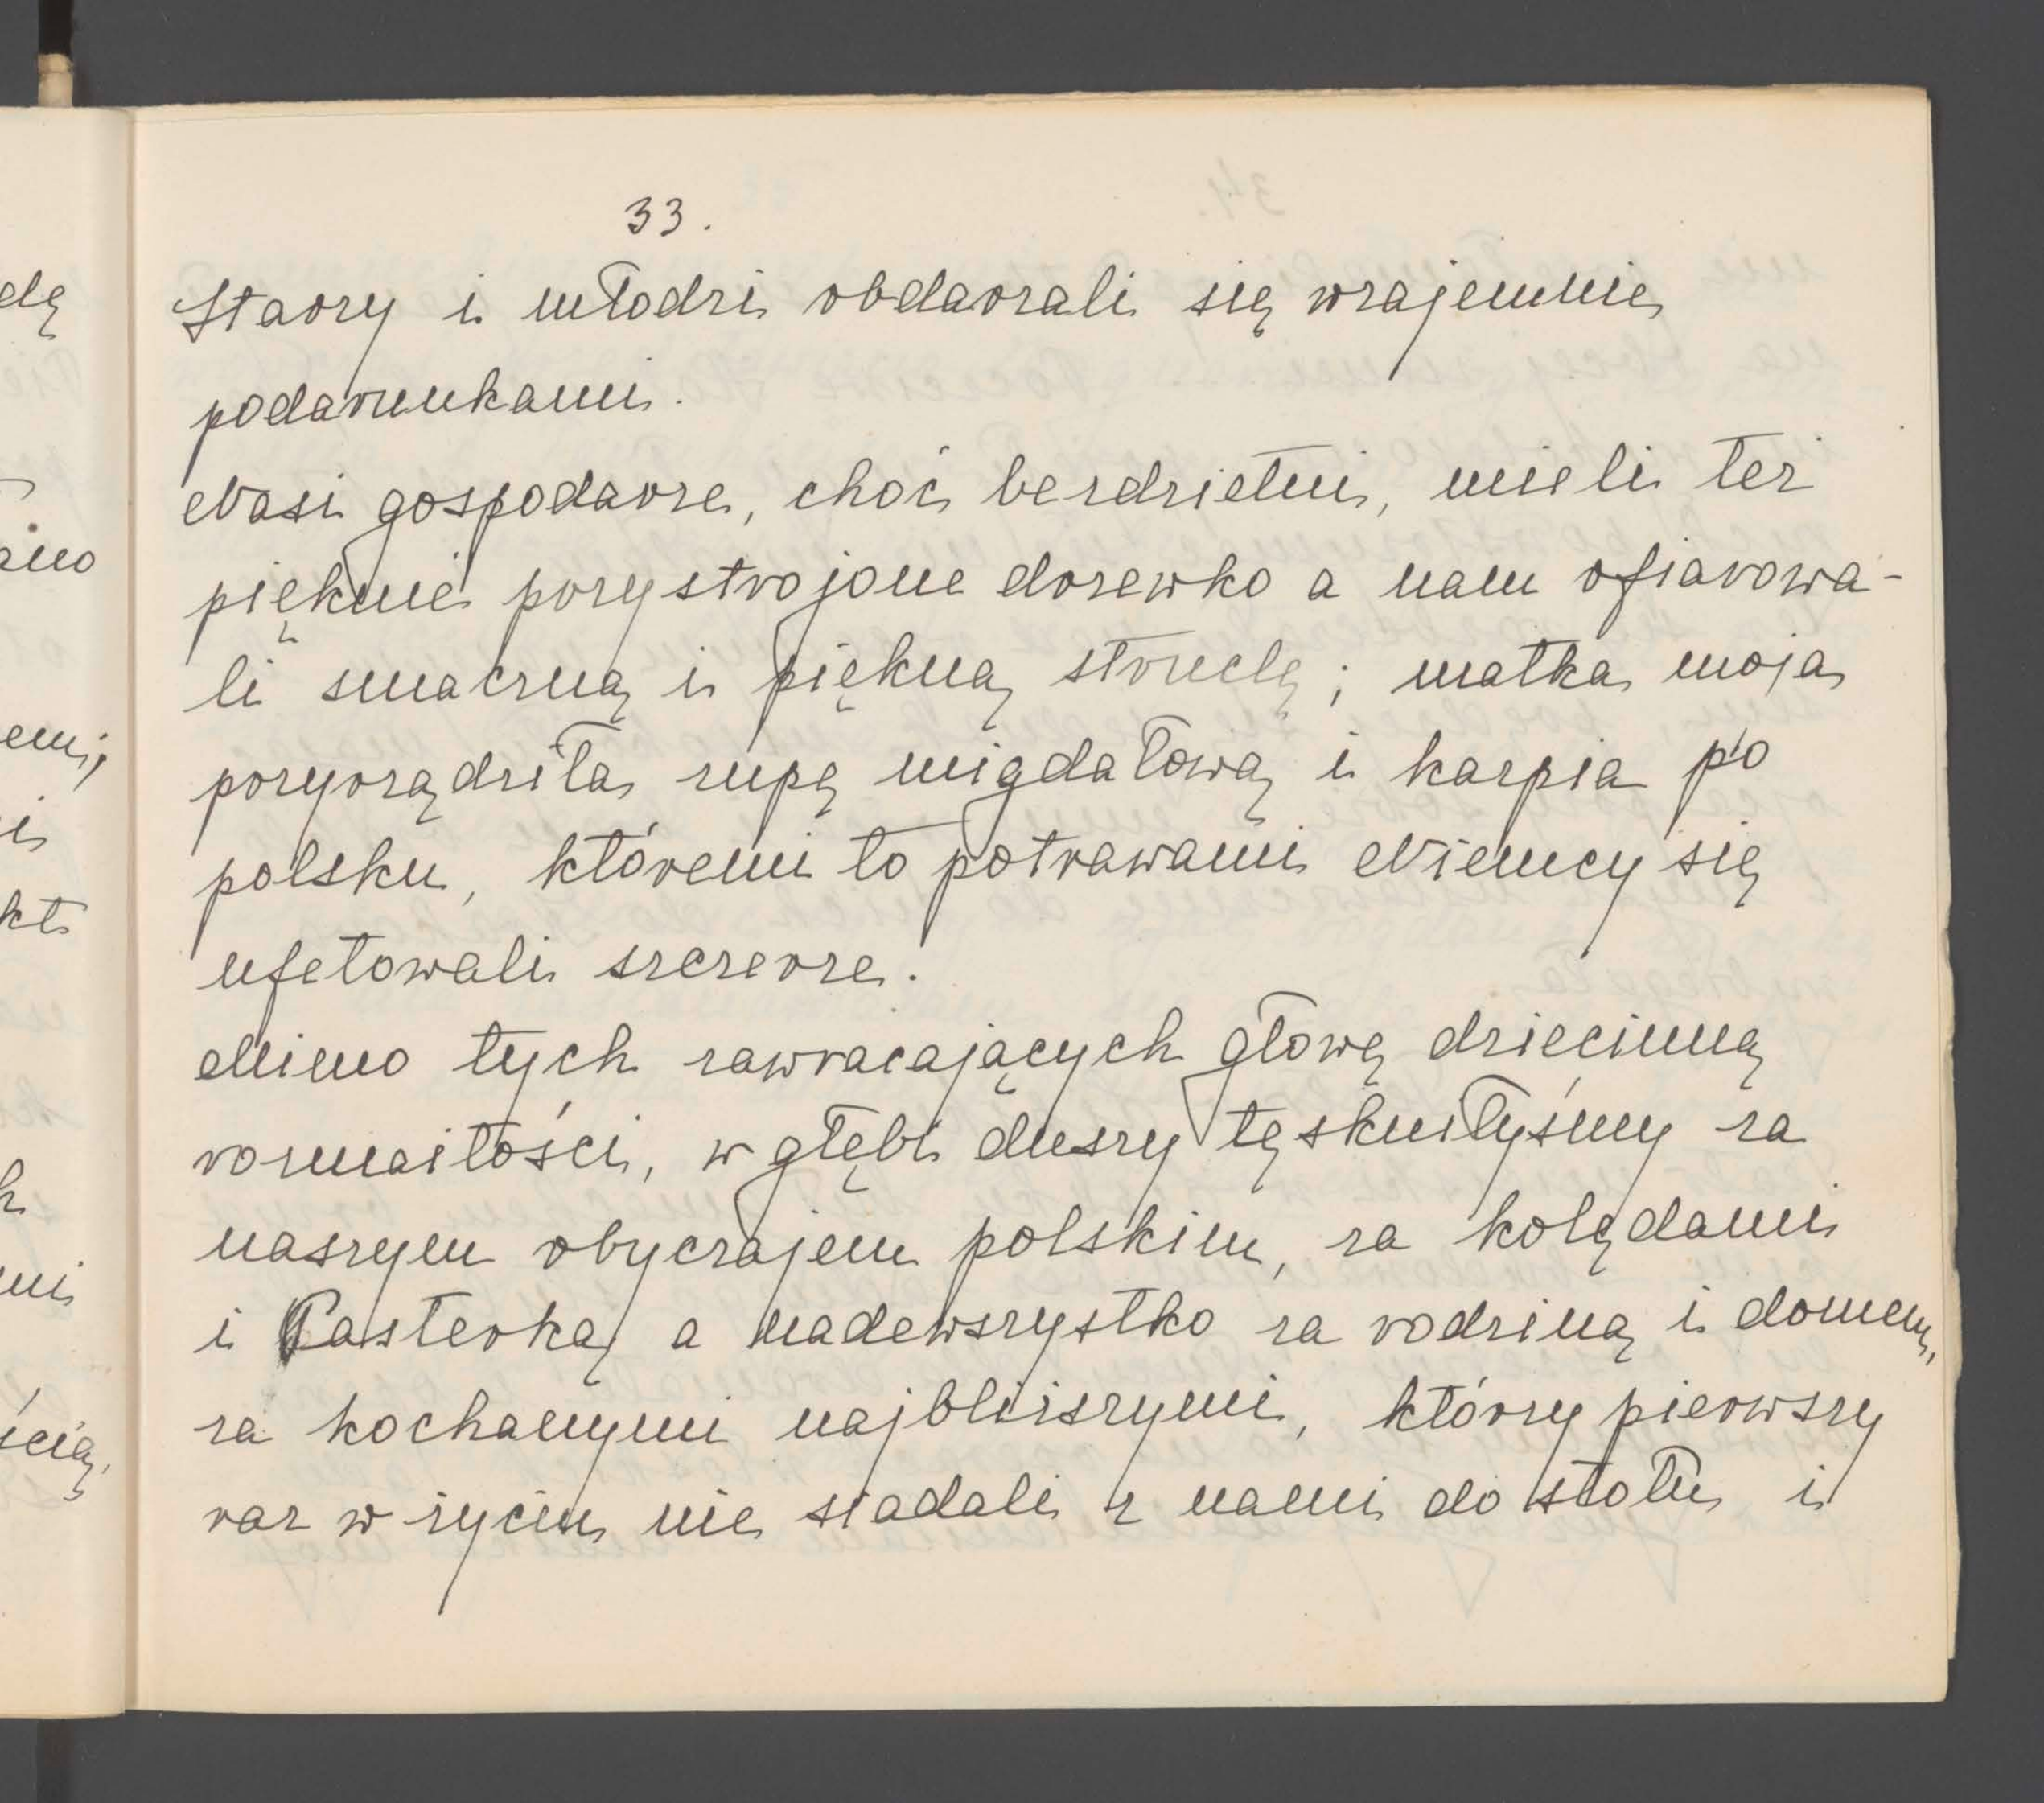 33.
Starzy i młodzi obdarzali się wzajemnie
podarunkami.
Nasi gospodarze, choć bezdzietni, mieli też
pięknie przystrojone drzewko a nam ofiarowa-
li smaczną i piękną struclę; matka moja
przyrządziła zupę migdałową i karpia po
polsku, któremi to potrawami Niemcy się
ufetowali szczerze.
Mimo tych zawracających głowę dziecinną
rozmaitości, w głębi duszy tęskniłyśmy za
naszym obyczajem polskim, za kolędami
i Pasterką a nadewszystko za rodziną i domem,
za kochanymi najbliższymi, którzy pierwszy
raz w życiu nie siadali z nami do stołu i